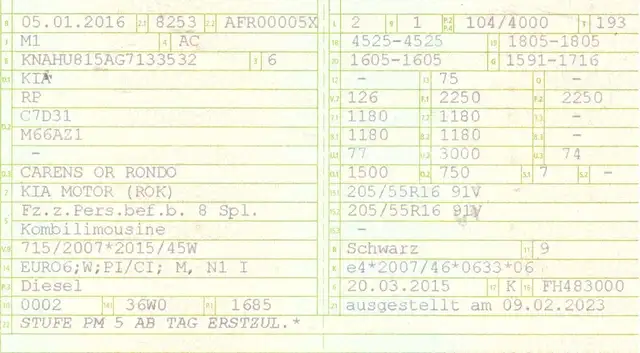 B 05.01.2016 2.1 8253 2.2 AFR00005X
J M1 4 AC
E KNAHU815AG7133532 3 6
D.1 KIA
RP
D.2 C7D31
M66AZ1
-
D.3 CARENS OR RONDO
2 KIA MOTOR (ROK)
5 Fz.z.Pers.bef.b. 8 Spl.
Kombilimousine
V.9 715/2007*2015/45W
14 EURO6;W;PI/CI; M, N1 I
P.3 Diesel
10 0002 14.1 36W0 P.1 1685
22 STUFE PM 5 AB TAG ERSTZUL.*
L 2 9 1 P.2 P.4 104/4000 T 193
18 4525-4525 19 1805-1805
20 1605-1605 G 1591-1716
12 - 13 75 Q -
V.7 126 F.1 2250 F.2 2250
7.1 1180 7.2 1180 7.3 -
8.1 1180 8.2 1180 8.3 -
U.1 77 U.2 3000 U.3 74
O.1 1500 O.2 750 S.1 7 S.2 -
15.1 205/55R16 91V
15.2 205/55R16 91V
15.3 -
R Schwarz 11 9
K e4*2007/46*0633*06
6 20.03.2015 17 K 16 FH483000
21 ausgestellt am 09.02.2023